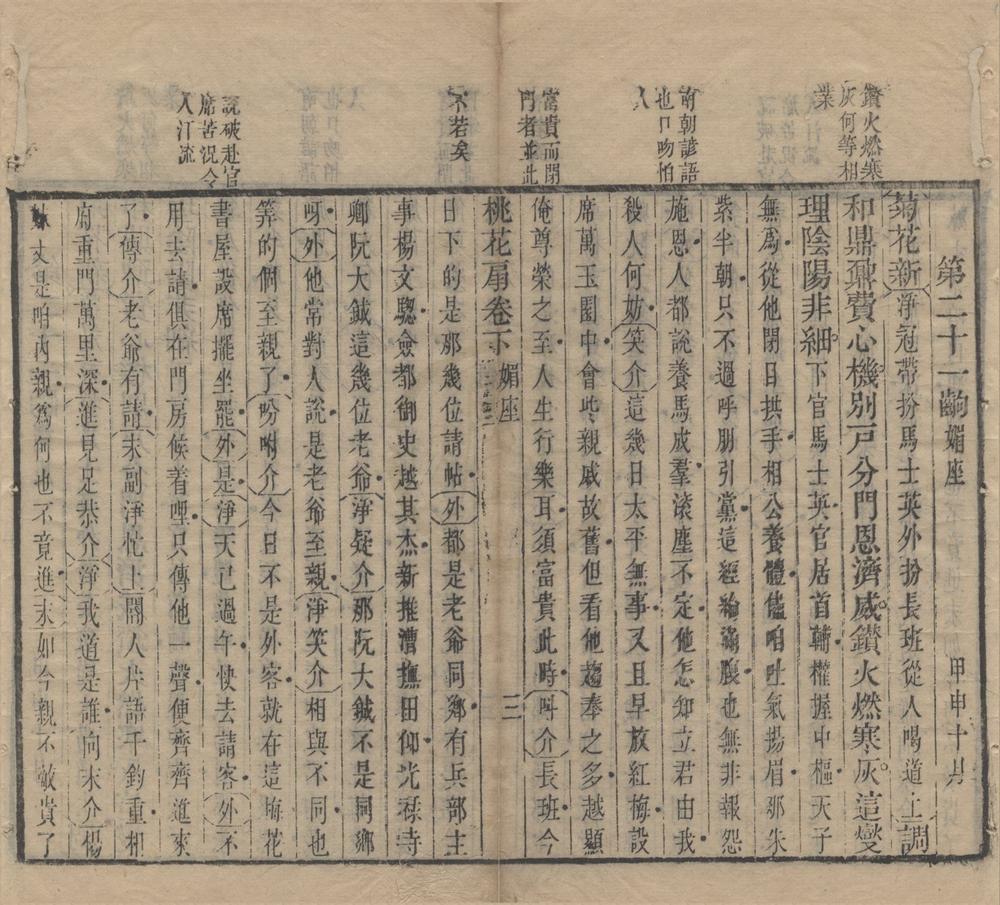 鑽火燃寒
灰何等相
業
南朝諺語
也口吻怕
人
富貴而閉
門者並此
不若矣
說破赴官
席苦況令
人汗流
第二十一齣媚座 甲申十月
菊花新淨冠帶扮馬士英外扮長班從人喝道上調
和鼎鼐費心機別戸分門恩濟威鑽火燃寒灰這燮
理陰陽非細下官馬士英官居首輔權握中樞天子
無爲從他閉目拱手相公養體儘咱吐氣揚眉那朱
紫半朝只不過呼朋引黨這經綸滿腹也無非報怨
施恩人都說養馬成羣滾塵不定他怎知立君由我
殺人何妨笑介這幾日太平無事又且早放紅梅設
席萬玉園中會些親戚故舊但看他趨奉之多越顯
俺尊榮之至人生行樂耳須富貴此時呌介長班今
桃花扇卷下 媚座 三
日下的是那幾位請帖外都是老爺同鄉有兵部主
事楊文驄僉都御史越其杰新推漕撫田仰光祿寺
卿阮大鋮這幾位老爺淨疑介那阮大鋮不是同鄉
呀外他常對人說是老爺至親淨笑介相與不同也
筭的個至親了吩咐介今日不是外客就在這梅花
書屋設席擺坐罷外是淨天已過午快去請客外不
用去請俱在門房候着哩只傳他一聲便齊齊進來
了傳介老爺有請末副淨忙上閽人片語千鈞重相
府重門萬里深進見足恭介淨我道是誰向末介楊
妹丈是咱內親爲何也不竟進末如今親不敵貴了